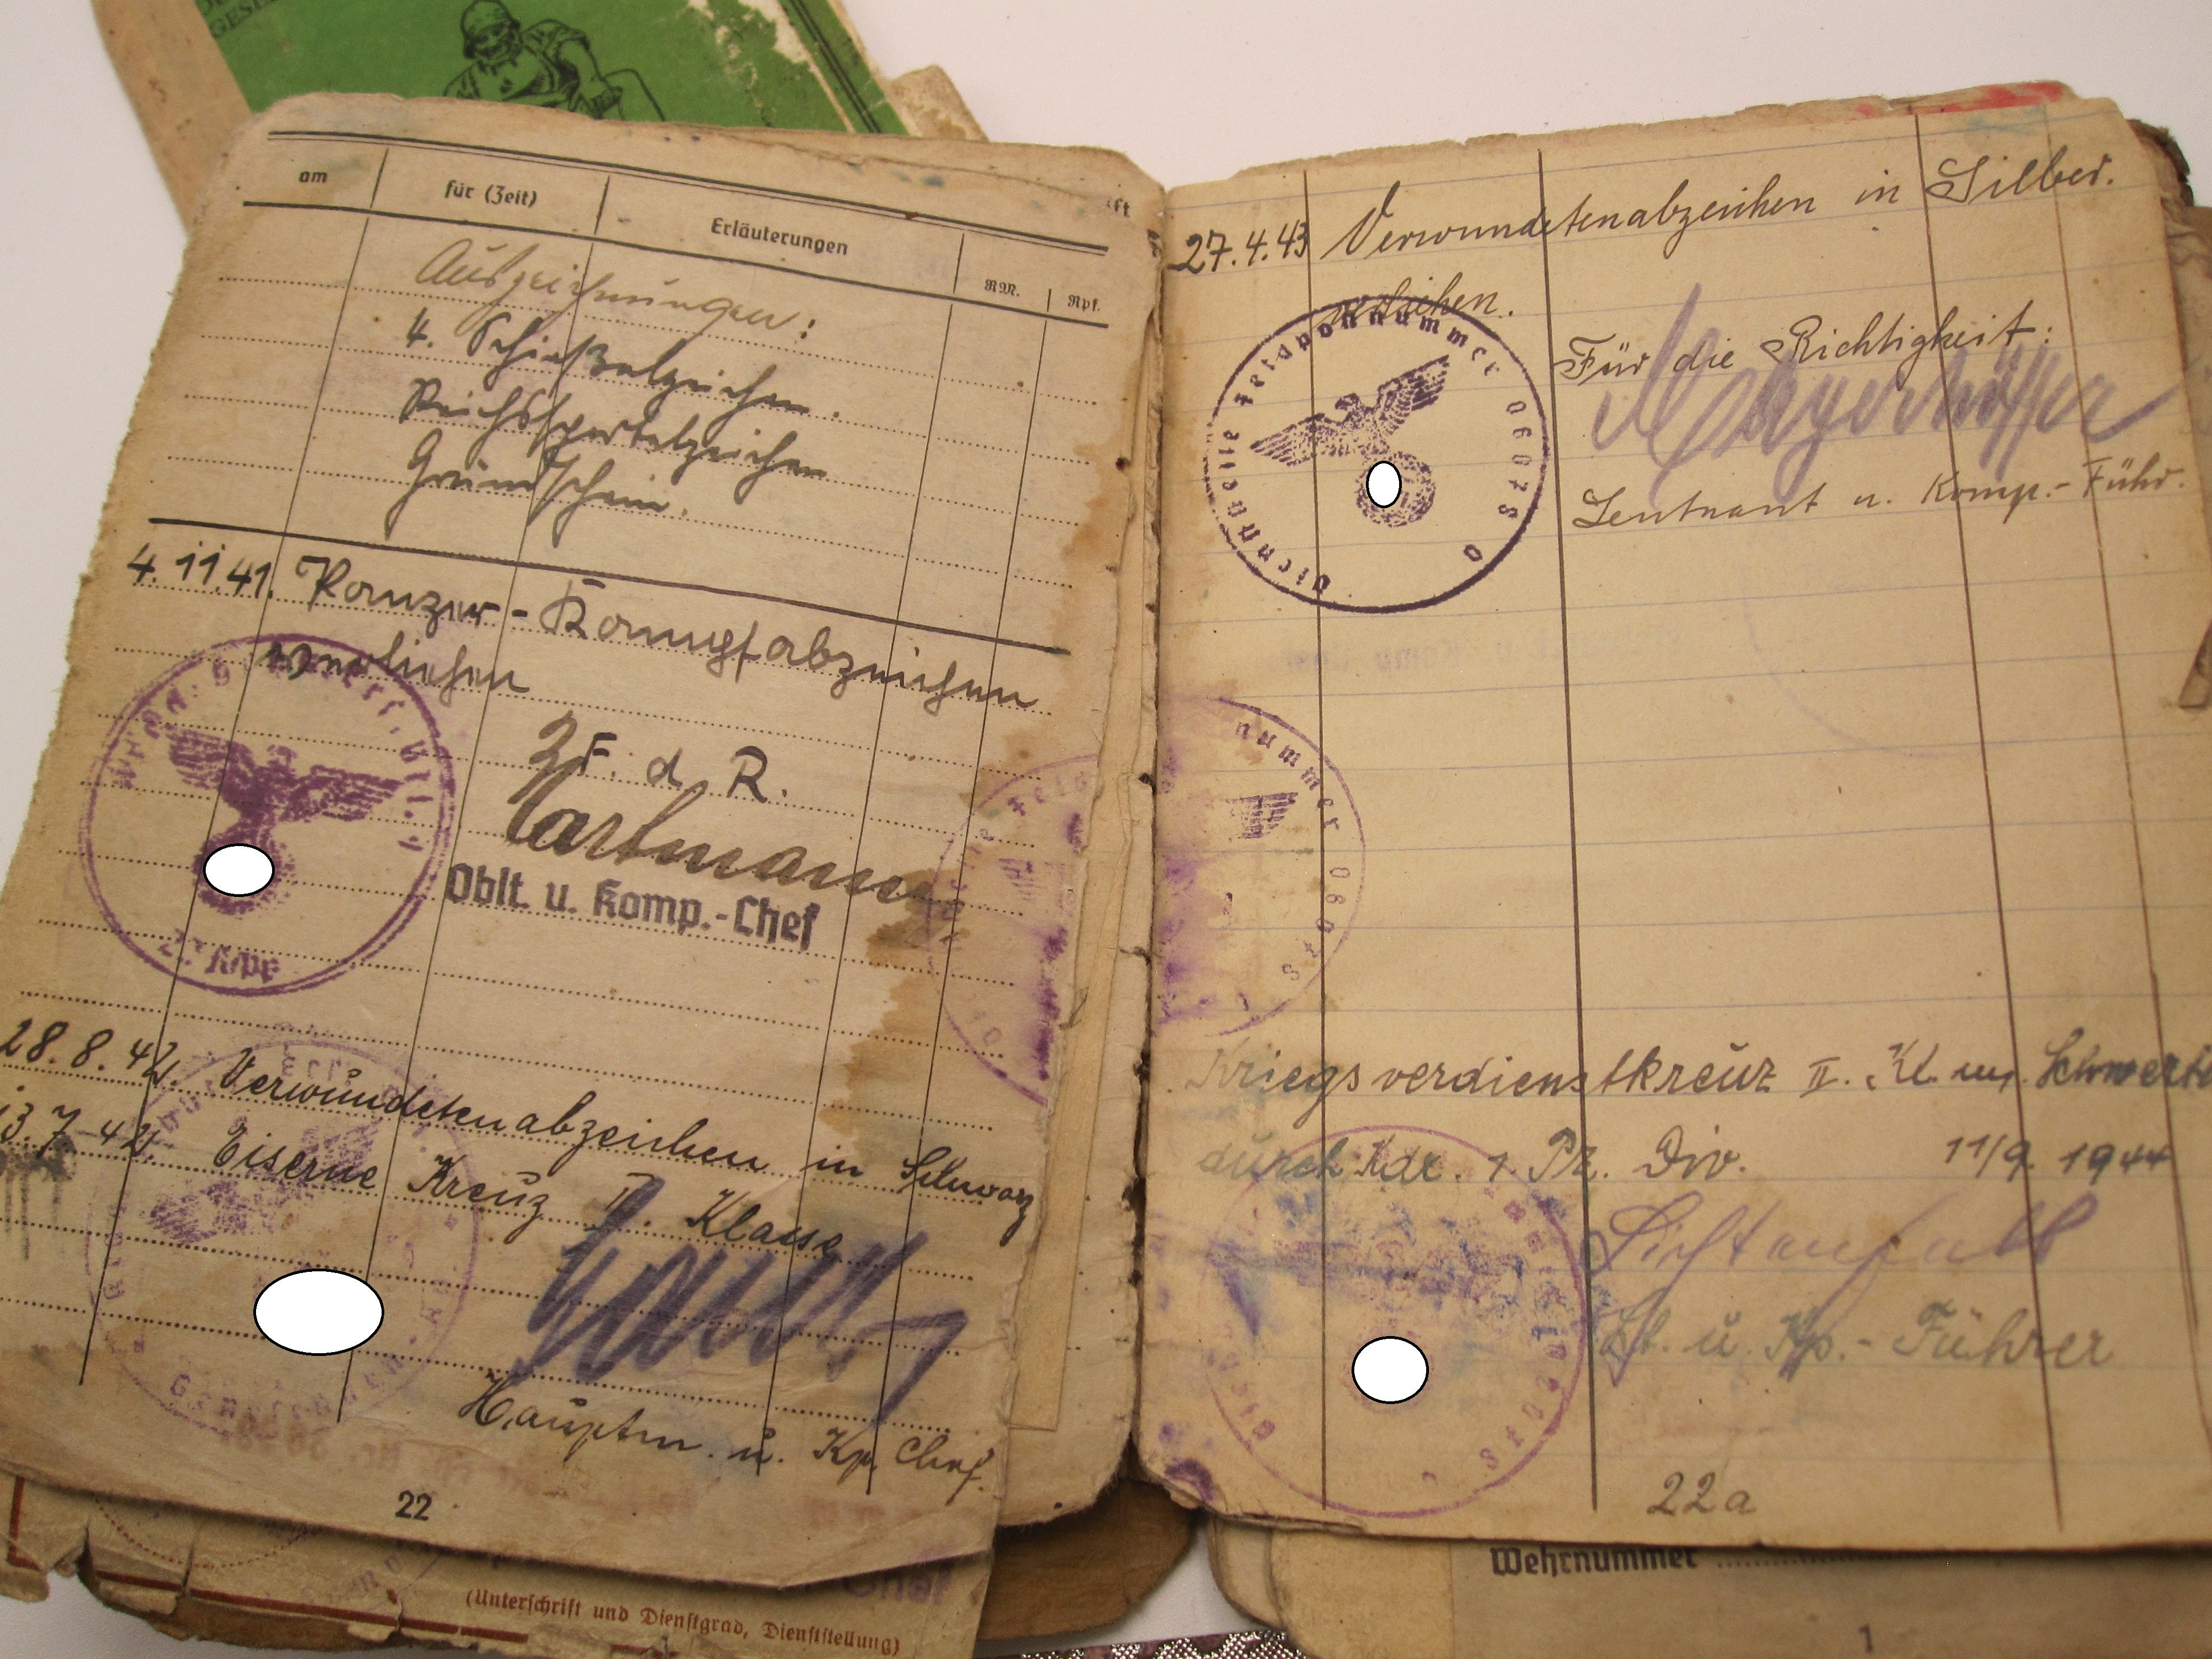 GESEL
am für (Zeit) Erläuterungen RM. Rpf.
Auszeichnungen:
4. Schießabzeichen.
Reichssportabzeichen
Grundschein.
4.11.41. Panzer-Kampfabzeichen
verliehen
F. d. R.
Hartmann
Oblt. u. Komp.-Chef
28.8.42. Verwundetenabzeichen in Schwarz
13.7.42. Eiserne Kreuz II. Klasse
Hauptm. u. Kp. Chef.
22
(Unterschrift und Dienstgrad, Dienststellung)
ft
27.4.43 Verwundetenabzeichen in Silber.
verliehen.
Für die Richtigkeit:
Dienststelle Feldpostnummer 06078
Leutnant u. Komp.-Führ.
nummer 060
Kriegsverdienstkreuz II. Kl. m. Schwerte
durch Kdr. 1. Pz. Div. 11/9. 1944
Lt. u. Kp.-Führer
22a
Wehrnummer
1